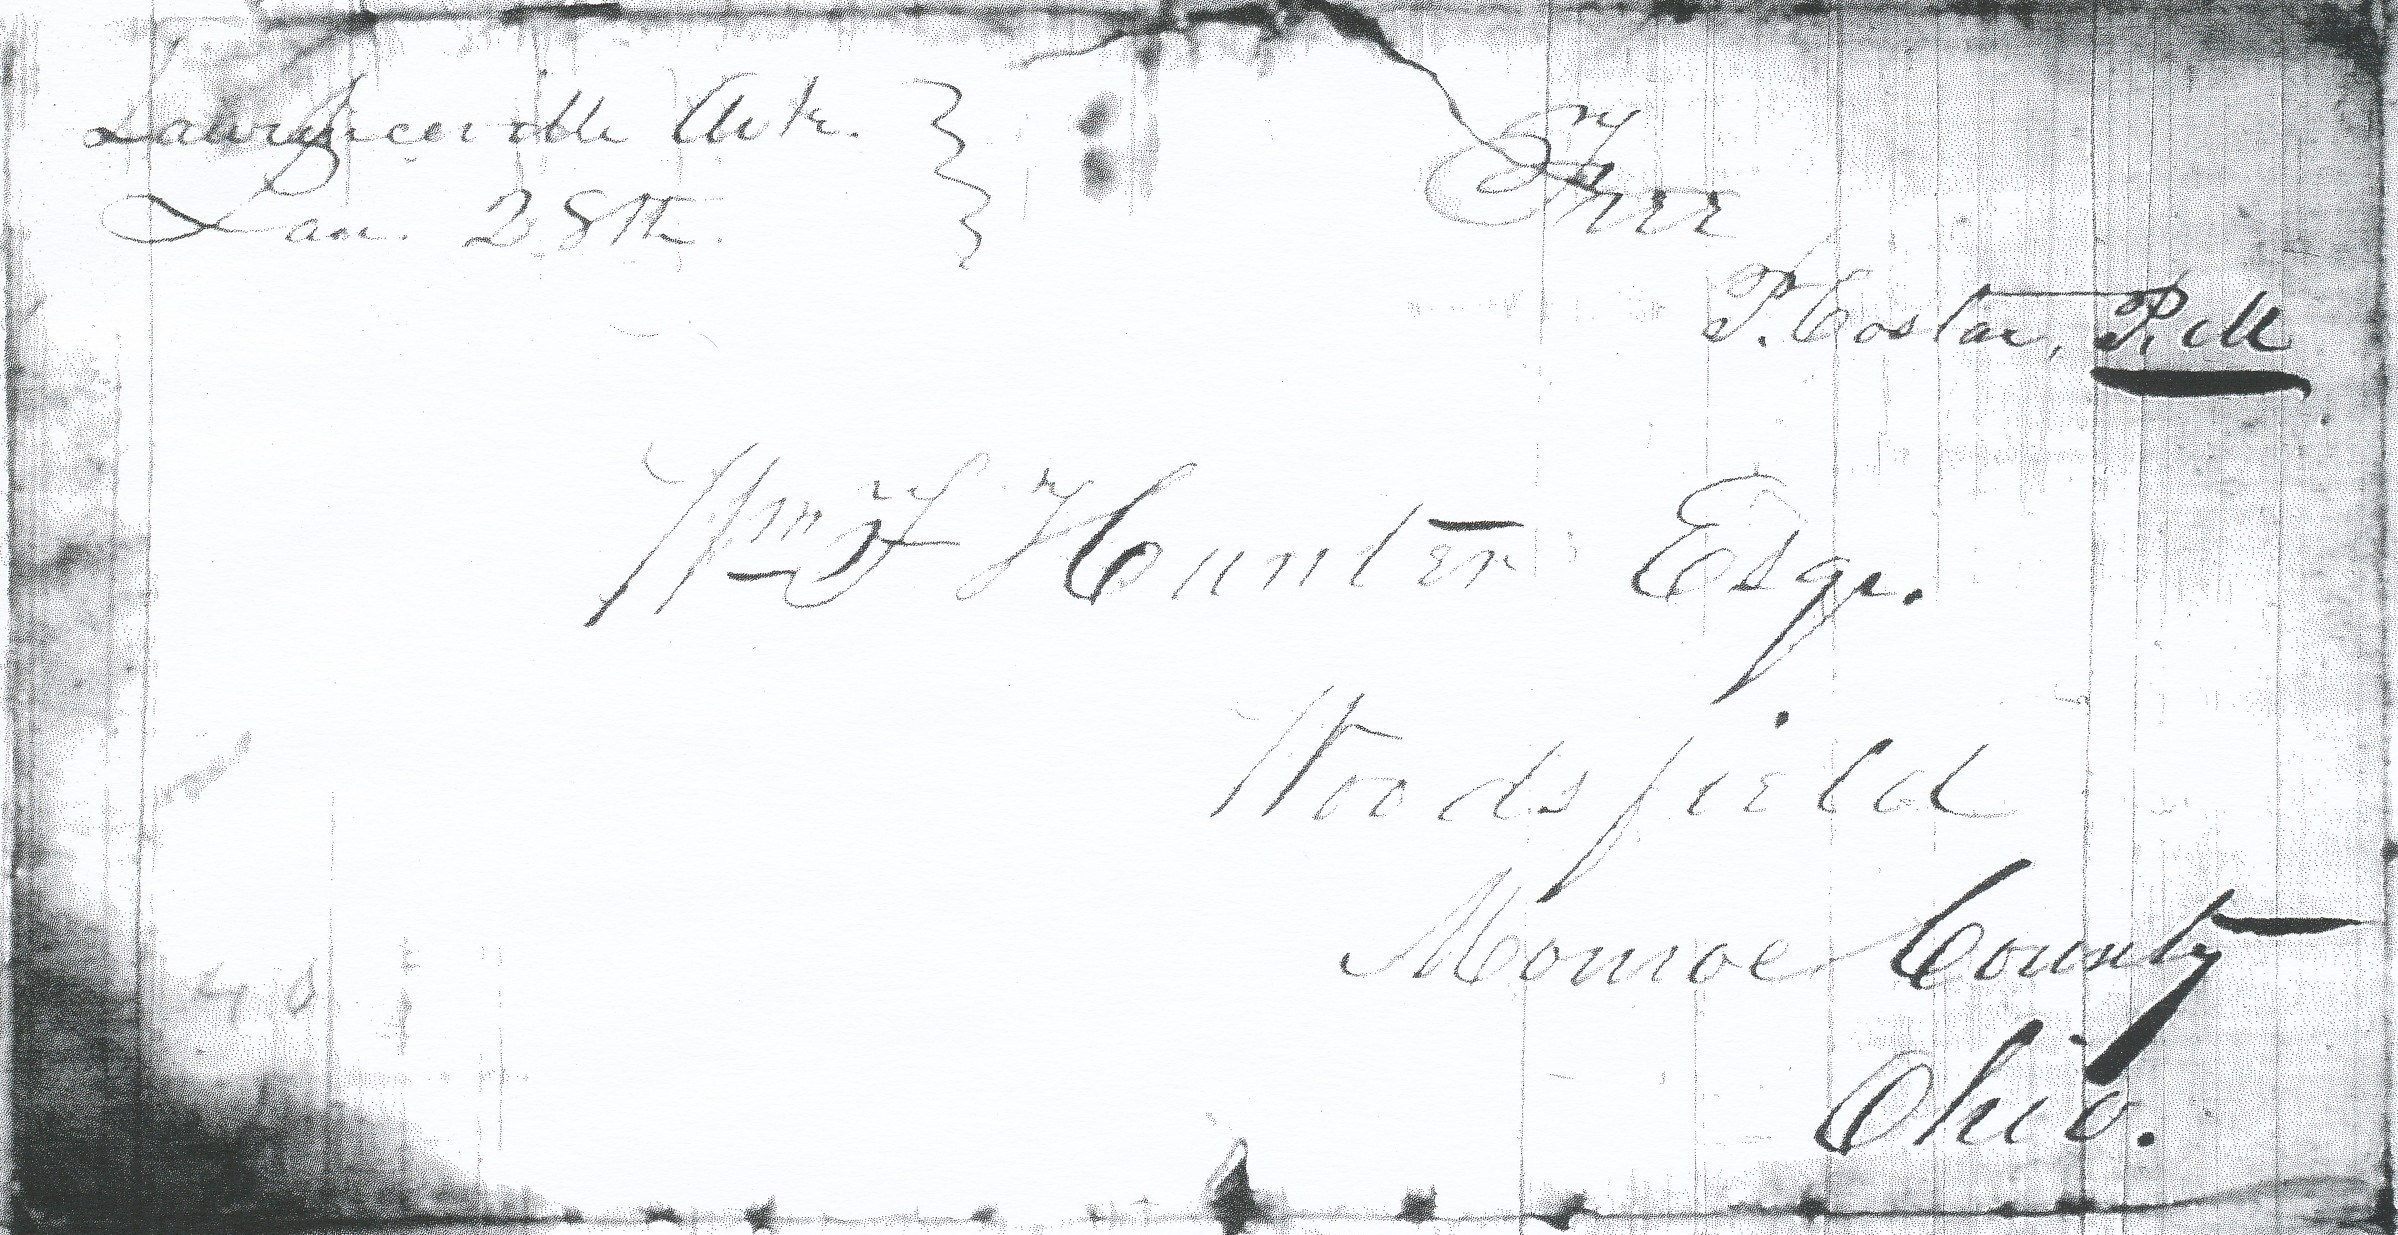 Lawrenceville Ark.
Jan. 28th.
Free
P. Costar, P. M
Wm F Hunter Esqr.
Woodsfield
Monroe County
Ohio.